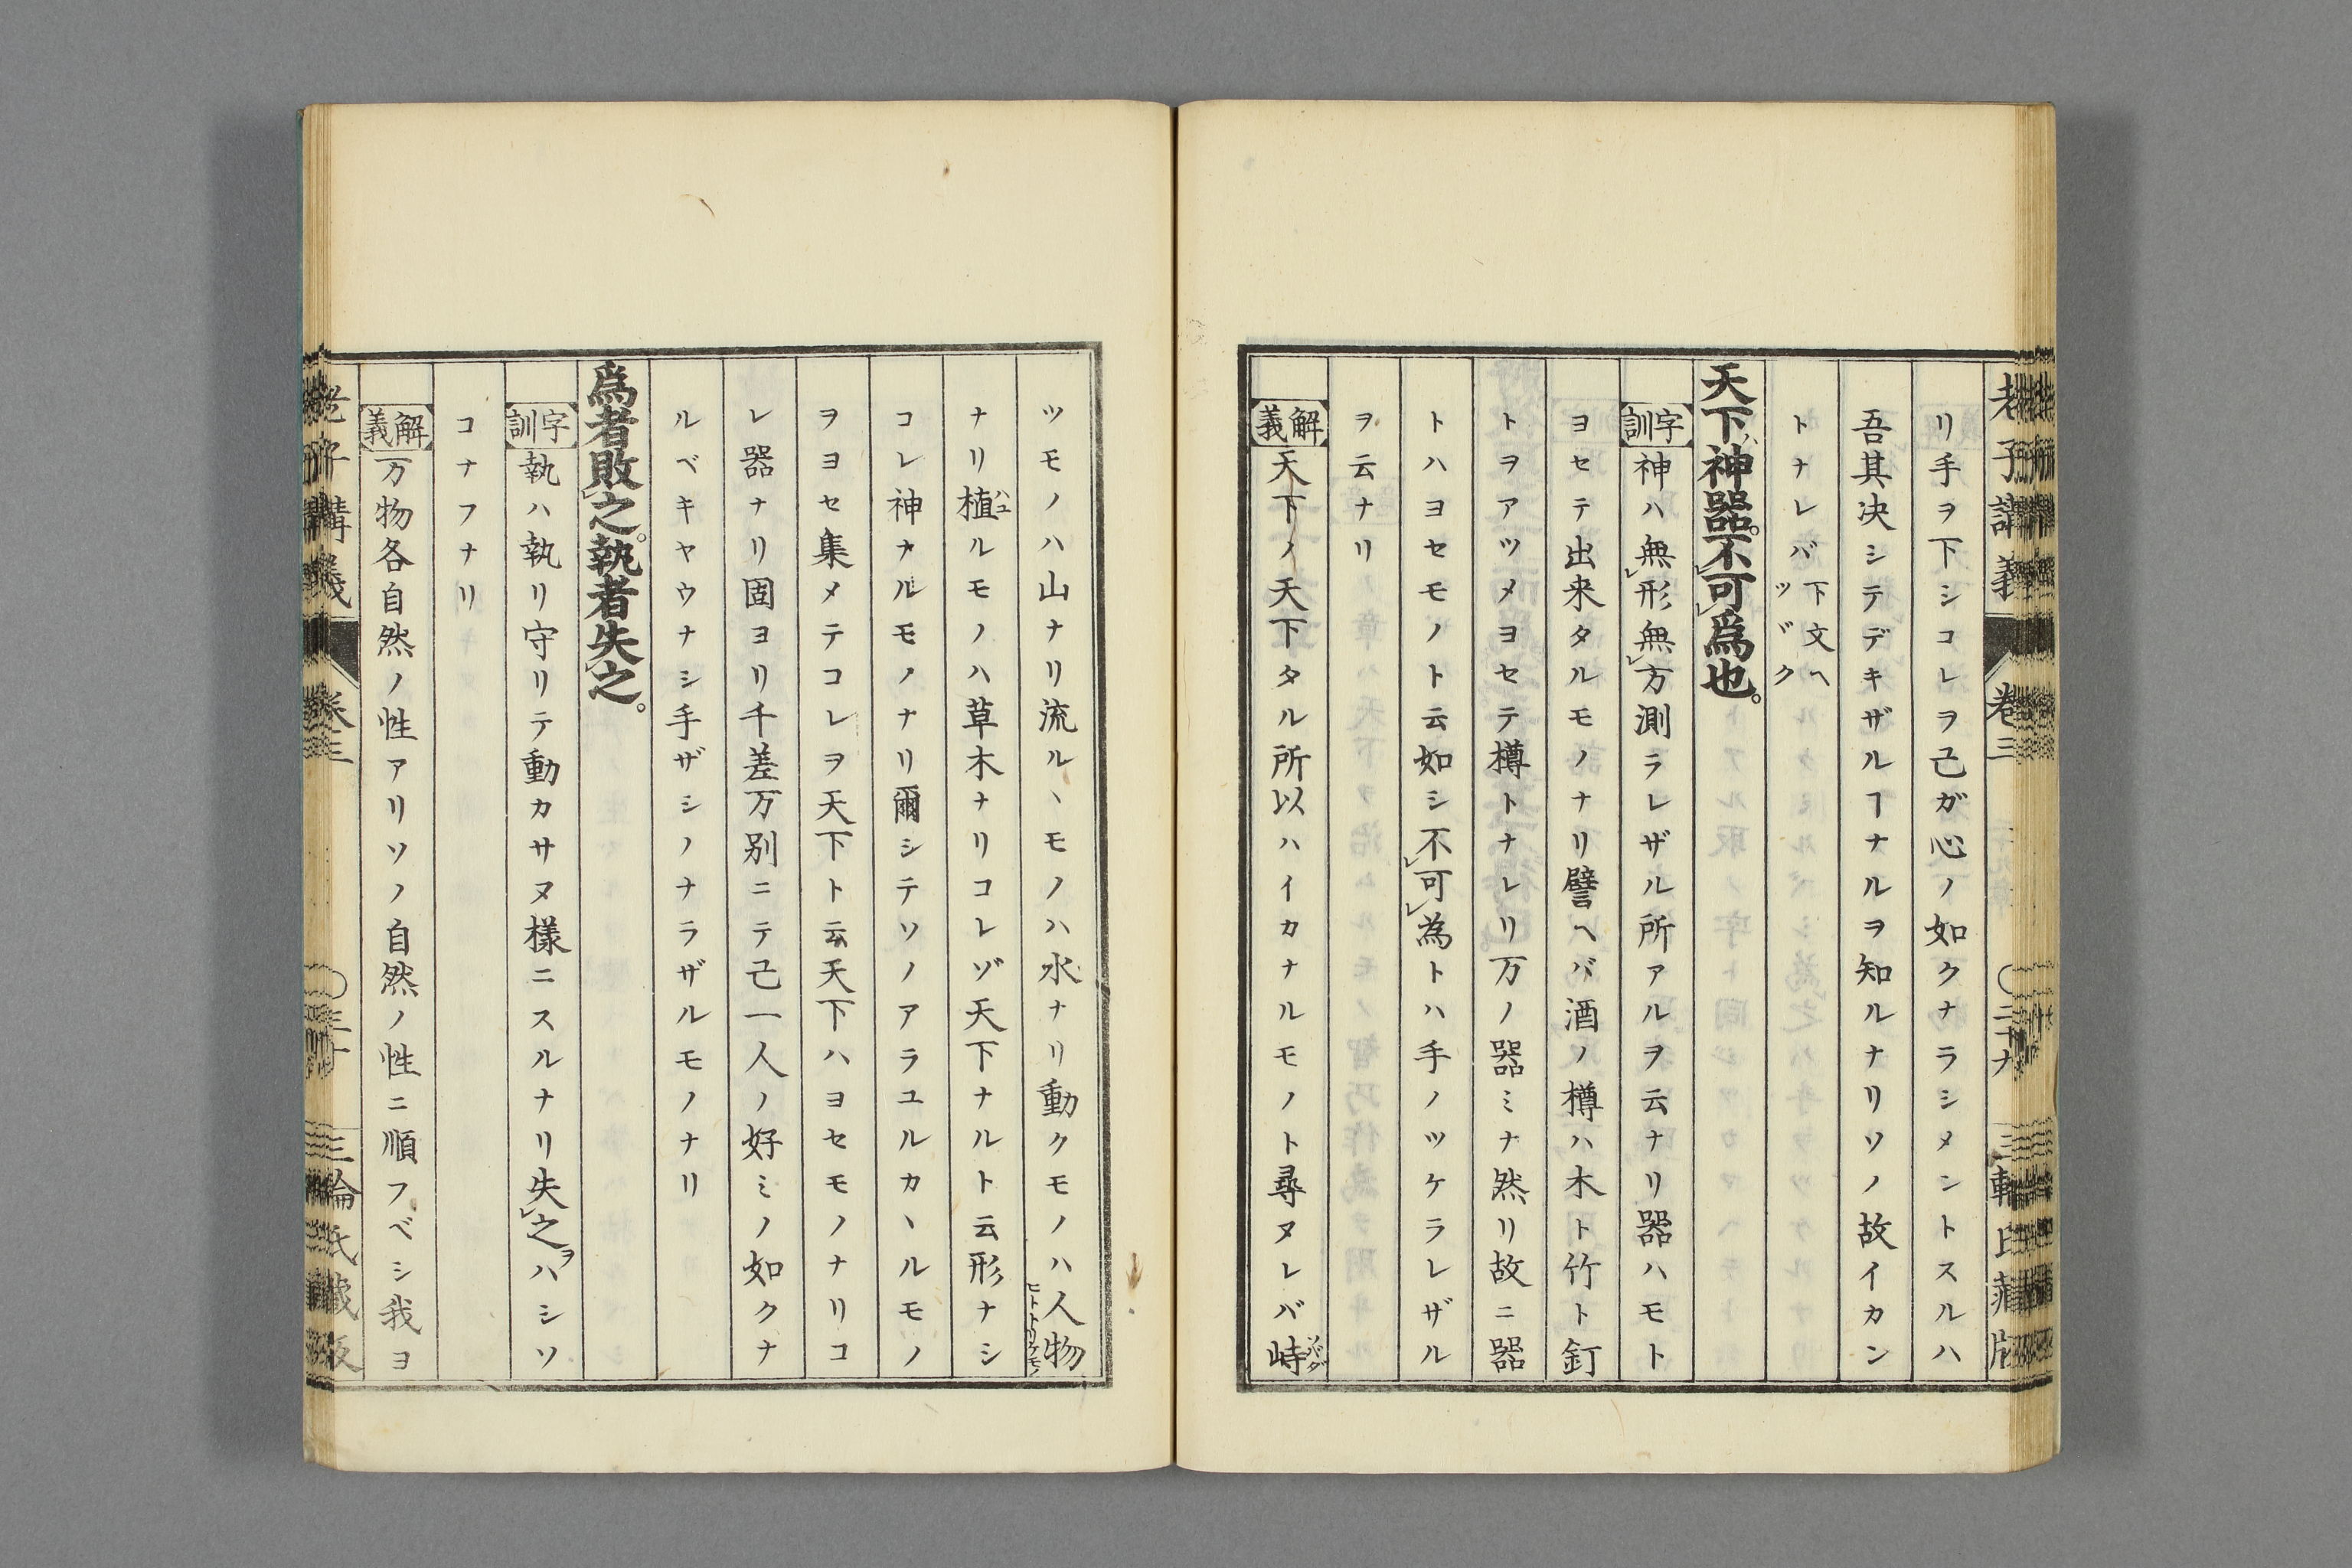 老子講義　巻三　〇二十九　三輪氏藏版
リ手ヲ下シコレヲ己ガ心ノ如クナラシメントスルハ
吾其决シテデキザルヿナルヲ知ルナリソノ故イカン
トナレバ下文ヘツヾク
天下神器。不可爲也。
字訓　神ハ無形無方測ラレザル所アルヲ云ナリ器ハモト
ヨセテ出来タルモノナリ譬ヘバ酒ノ樽ハ木ト竹ト釘
トヲアツメヨセテ樽トナレリ万ノ器ミナ然リ故ニ器
トハヨセモノト云如シ不可為トハ手ノツケラレザル
ヲ云ナリ
解義　天下ノ天下タル所以ハイカナルモノト尋ヌレバ峙ソバダ
ツモノハ山ナリ流ルヽモノハ水ナリ動クモノハ人物
ナリ植ハユルモノハ草木ナリコレゾ天下ナルト云形ナシ
コレ神ナルモノナリ爾シテソノアラユルカヽルモノ
ヲヨセ集メテコレヲ天下ト云天下ハヨセモノナリコ
レ器ナリ固ヨリ千差万別ニテ己一人ノ好ミノ如クナ
ルベキヤウナシ手ザシノナラザルモノナリ
爲者敗之。執者失之。
字訓　執ハ執リ守リテ動カサヌ樣ニスルナリ失之ヲハシソ
コナフナリ
解義　万物各自然ノ性アリソノ自然ノ性ニ順フベシ我ヨ
老子講義　巻三　〇三十　三輪氏藏版